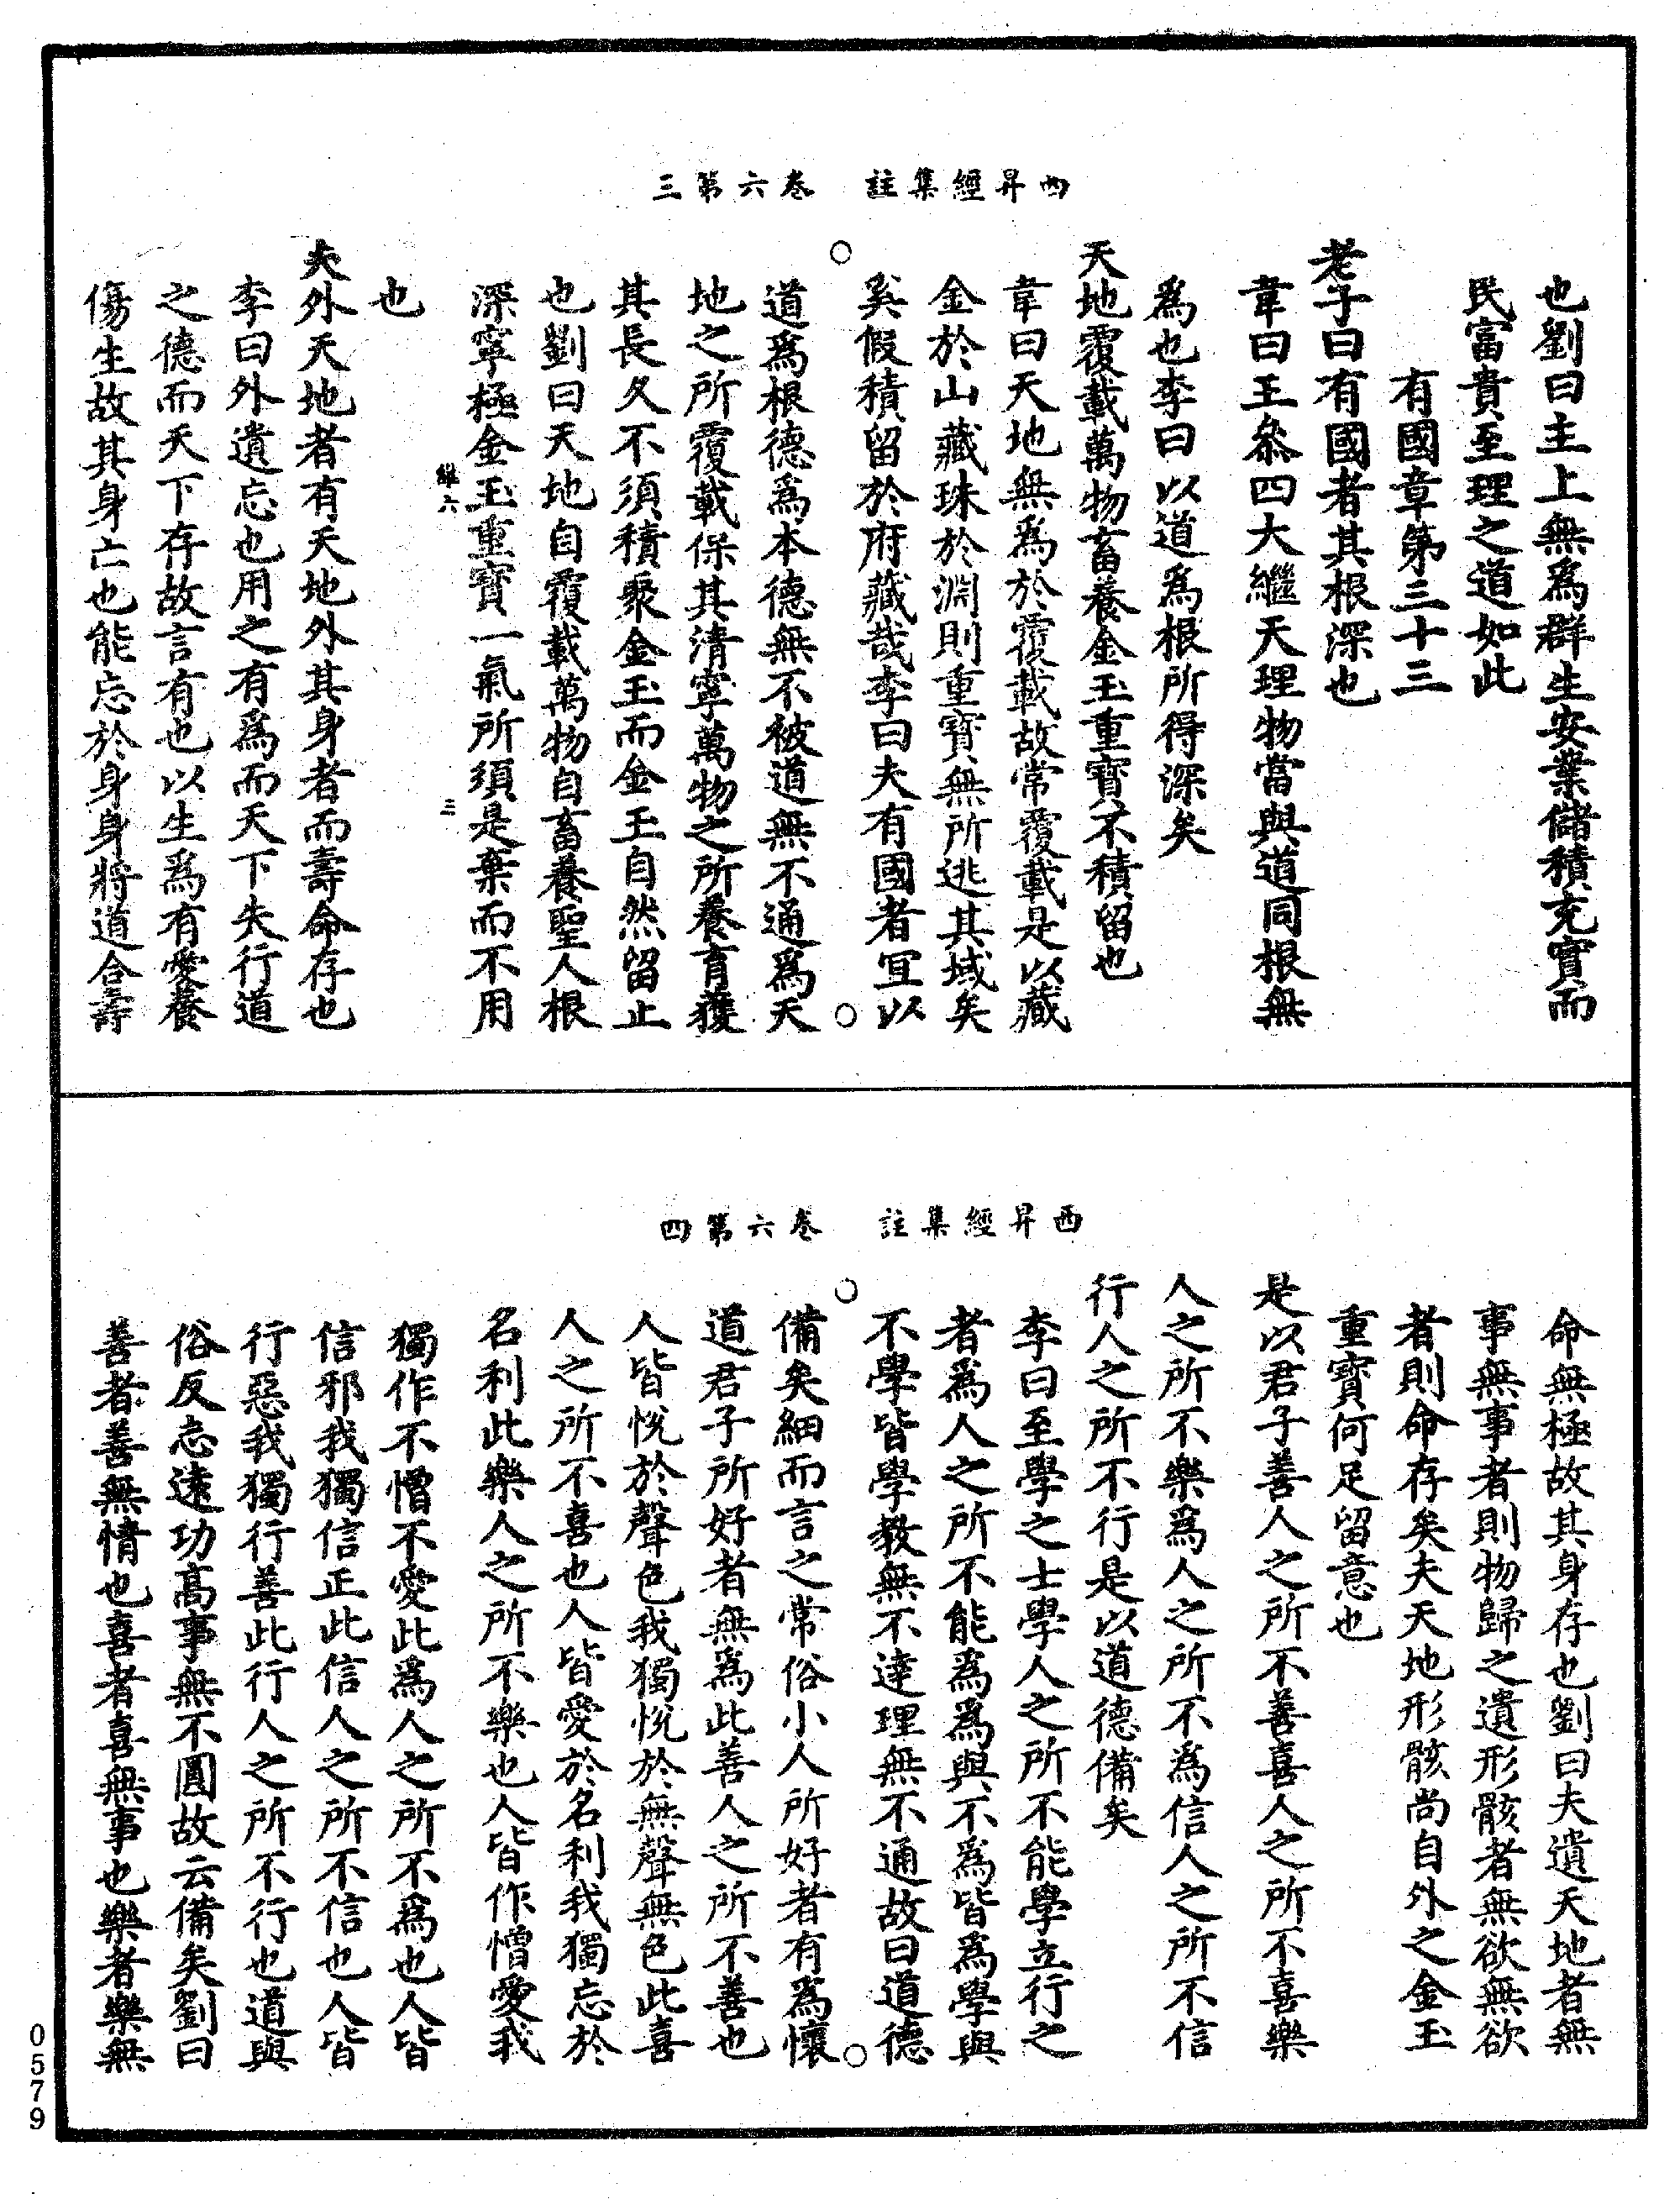 西昇經集註　卷六第三
也劉曰主上無爲群生安業儲積充實而
民富貴至理之道如此
有國章第三十三
老子曰有國者其根深也
韋曰王叅四大繼天理物當與道同根無
爲也李曰以道爲根所得深矣
天地覆載萬物畜養金玉重寳不積留也
韋曰天地無爲於覆載故常覆載是以藏
金於山藏珠於淵則重寳無所逃其域矣
奚假積留於府藏哉李曰夫有國者宜以
道爲根德爲本德無不被道無不通爲天
地之所覆載保其清寧萬物之所養育獲
其長久不須積聚金玉而金玉自然留止
也劉曰天地自覆載萬物自畜養聖人根
深寧極金玉重寳一氣所須是棄而不用
維六　三
也
夫外天地者有天地外其身者而壽命存也
李曰外遺忘也用之有爲而天下失行道
之德而天下存故言有也以生爲有愛養
傷生故其身亡也能忘於身身將道合壽
西昇經集註　卷六第四
命無極故其身存也劉曰夫遺天地者無
事無事者則物歸之遺形骸者無欲無欲
者則命存矣夫天地形骸尚自外之金玉
重寳何足留意也
是以君子善人之所不善喜人之所不喜樂
人之所不樂爲人之所不爲信人之所不信
行人之所不行是以道德備矣
李曰至學之士學人之所不能學立行之
者爲人之所不能爲爲與不爲皆爲學與
不學皆學教無不達理無不通故曰道德
備矣細而言之常俗小人所好者有爲懷
道君子所好者無爲此善人之所不善也
人皆悅於聲色我獨悅於無聲無色此喜
人之所不喜也人皆愛於名利我獨忘於
名利此樂人之所不樂也人皆作憎愛我
獨作不憎不愛此爲人之所不爲也人皆
信邪我獨信正此信人之所不信也人皆
行惡我獨行善此行人之所不行也道與
俗反志遠功高事無不圓故云備矣劉曰
善者善無情也喜者喜無事也樂者樂無
0579